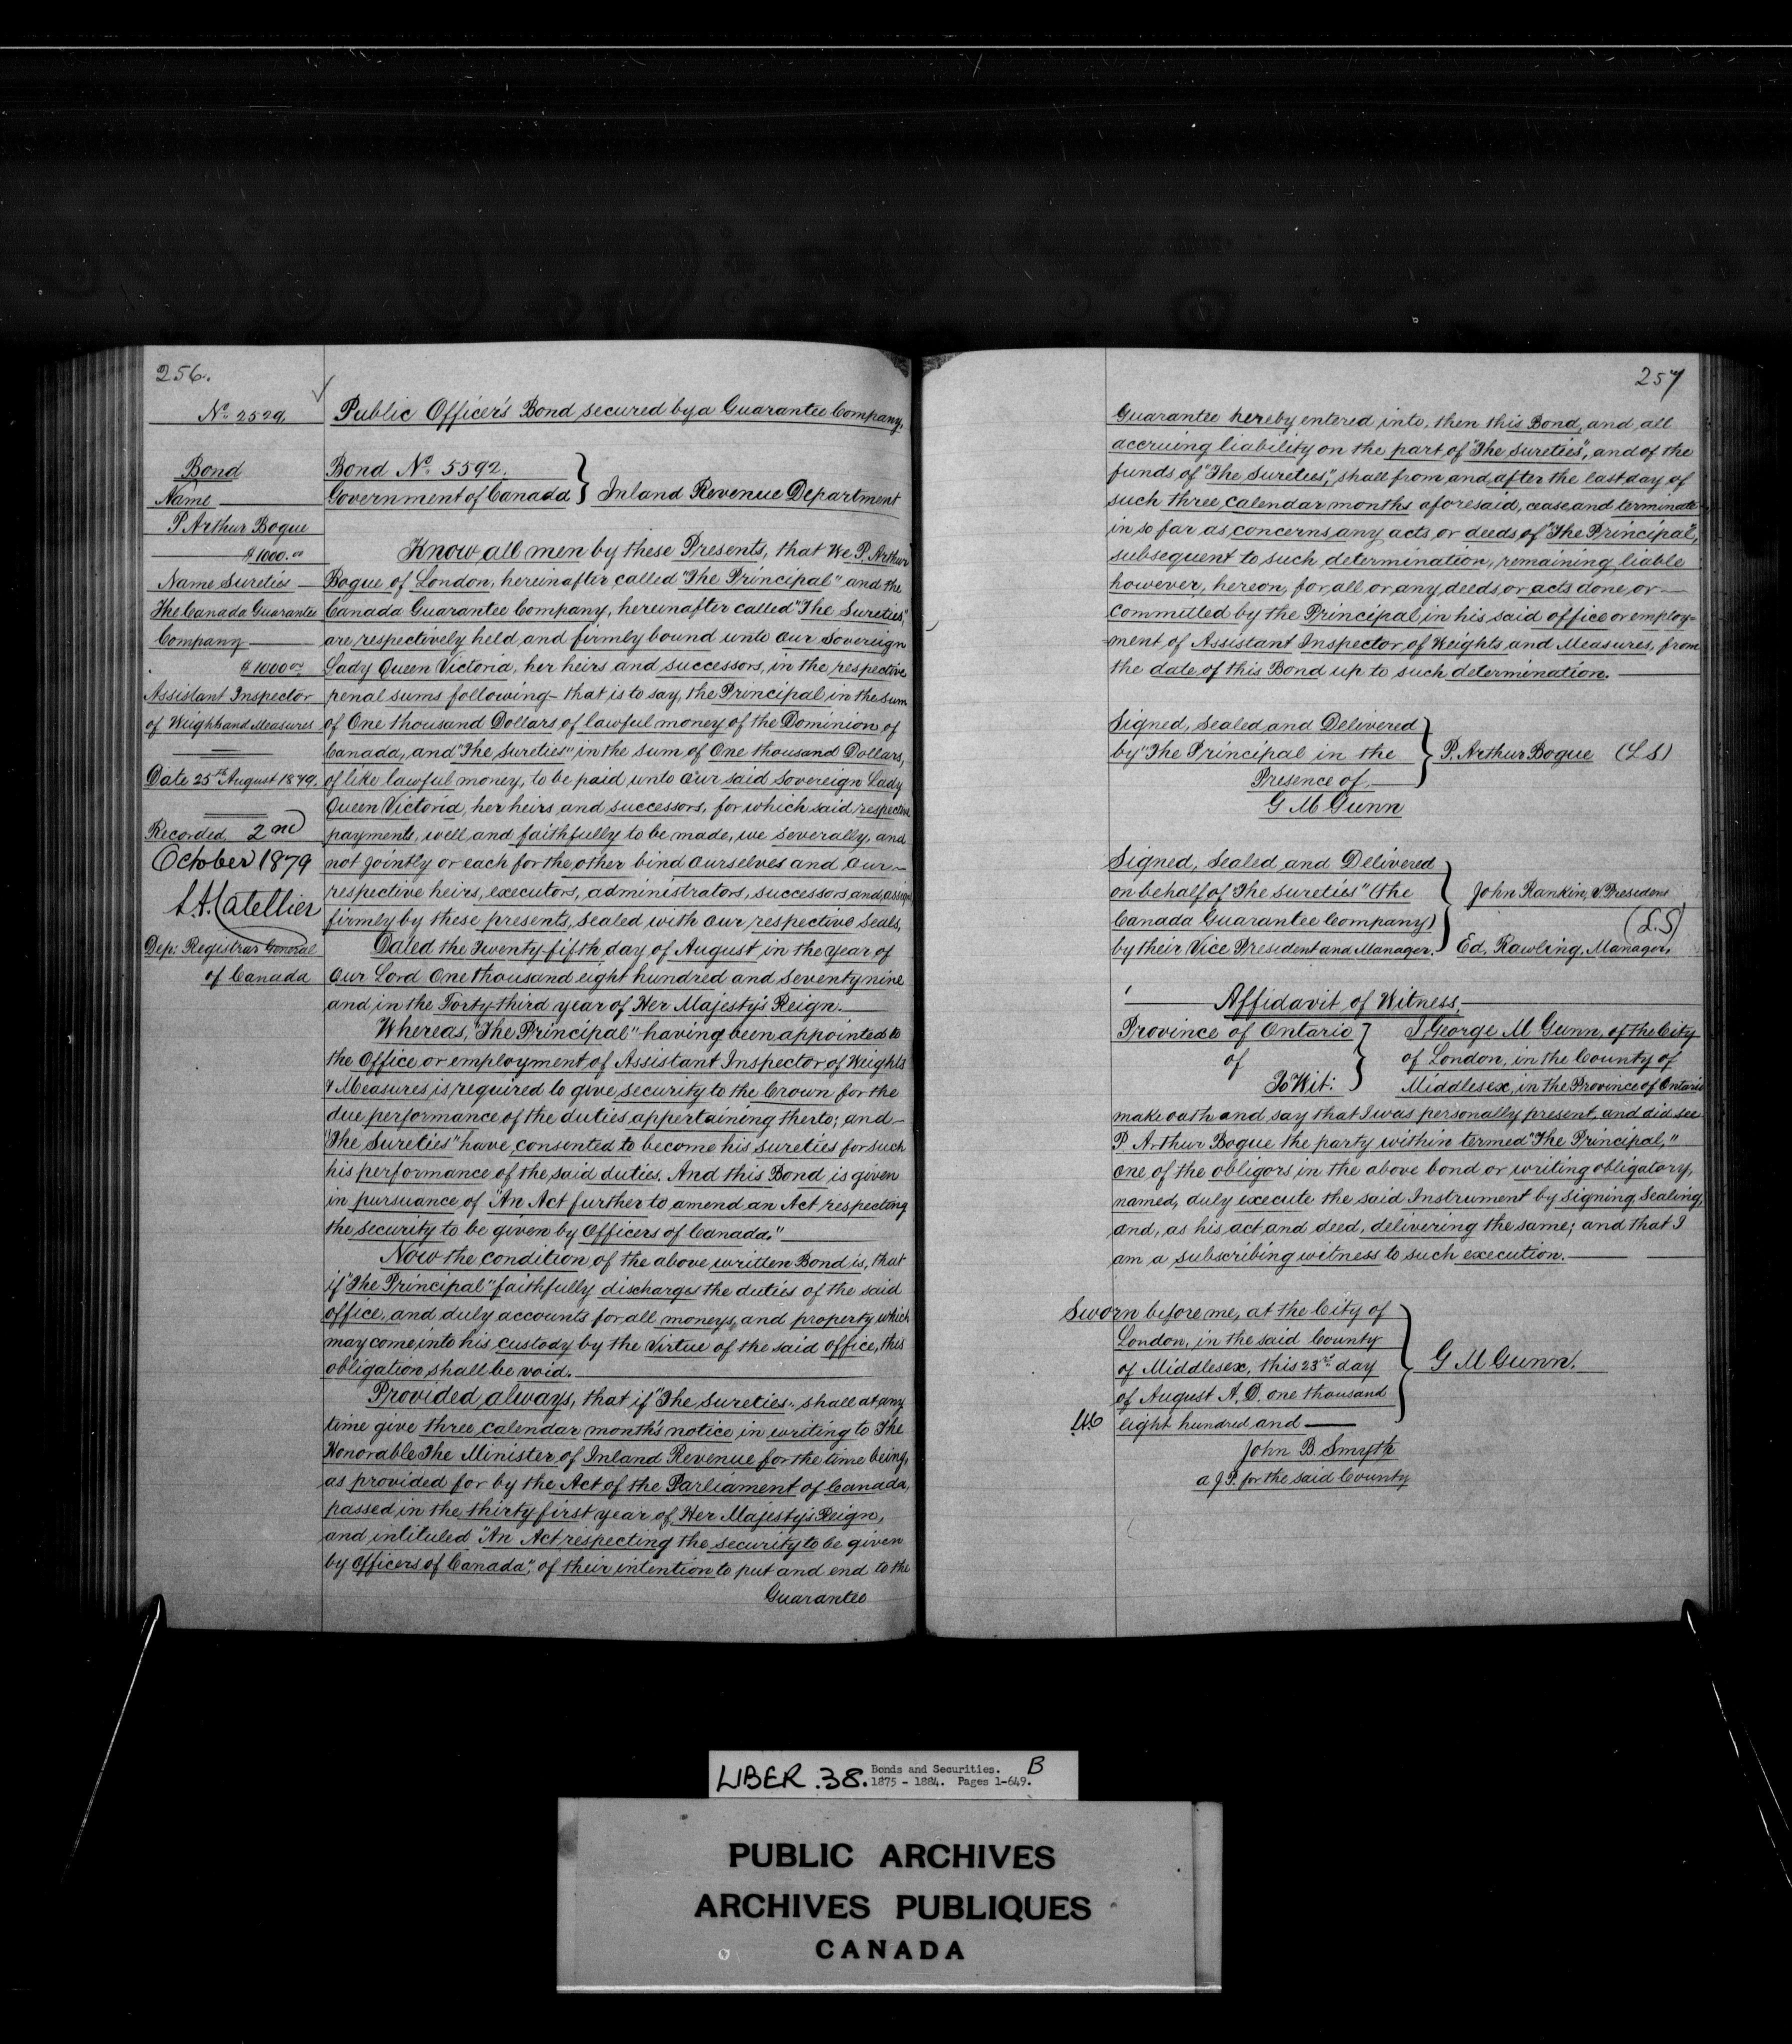 256.
No. 2529.
Bond
Name
P Arthur Bogue
$1000.00
Name Sureties
The Canada Guarantee
Company
$1000.00
Assistant Inspector
of Weigh and Measures
Date 25th August 1879.
Recorded 2nd
October 1879
L. A. Catellier
Dep: Registrar General
of Canada
Public Officer's Bond secured by a Guarantee Company.
Bond No. 5592.
Government of Canada } Inland Revenue Department
Know all men by these Presents, that We P. Arthur
Bogue of London, hereinafter called "The Principal" and the
Canada Guarantee Company, hereinafter called "The Sureties",
are respectively held and firmly bound unto our Sovereign
Lady Queen Victoria, her heirs and successors, in the respective
penal sums following - that is to say, the Principal in the sum
of One thousand Dollars of lawful money of the Dominion of
Canada, and "The Sureties" in the sum of One thousand Dollars,
of like lawful money, to be paid unto our said Sovereign Lady
Queen Victoria, her heirs and successors, for which said respective
payments, well and faithfully to be made, we severally, and
not jointly or each for the other bind ourselves and our
respective heirs, executors, administrators, successors and assigns
firmly by these presents, sealed with our respective seals,
Dated the Twenty-fifth day of August in the year of
our Lord One thousand eight hundred and seventy nine
and in the Forty-third year of Her Majesty's Reign.
Whereas, "The Principal" having been appointed to
the Office or employment of Assistant Inspector of Weights
& Measures is required to give security to the Crown for the
due performance of the duties appertaining therto; and
"The Sureties" have consented to become his sureties for such
his performance of the said duties. And this Bond is given
in pursuance of "An Act further to amend an Act respecting
the security to be given by Officers of Canada."
Now the condition of the above written Bond is, that
if "The Principal" faithfully discharges the duties of the said
office, and duly accounts for all moneys, and property which
may come into his custody by the Virtue of the said office, this
obligation shall be void.
Provided always, that if "The Sureties" shall at any
time give three calendar month's notice in writing to The
Honorable The Minister of Inland Revenue for the time being,
as provided for by the Act of the Parliament of Canada,
passed in the thirty first year of Her Majesty's Reign,
and intituled "An Act respecting the security to be given
by Officers of Canada", of their intention to put and end to the
Guarantee
257
Guarantee hereby entered into, then this Bond, and all
accruing liability on the part of "The Sureties", and of the
funds of "The Sureties", shall from and after the last day of
such three calendar months aforesaid, cease and terminate
in so far as concerns any acts or deeds of "The Principal",
subsequent to such determination, remaining liable
however, hereon, for all or any deeds or acts done or
committed by the Principal in his said office or employ=
=ment of Assistant Inspector of Weights and Measures, from
the date of this Bond up to such determination.
Signed, Sealed and Delivered
by "The Principal in the } P. Arthur Bogue (LS)
Presence of
G M Gunn
Signed, Sealed and Delivered
on behalf of "The Sureties" (the } John Rankin, V President
Canada Guarantee Company) (L.S)
by their Vice President and Manager. Ed. Rawling, Manager,
Affidavit of Witness.
Province of Ontario } I George M Gunn, of the City
of of London, in the County of
To Wit: Middlesex, in the Province of Ontario
make oath and say that I was personally present, and did see
P. Arthur Bogue the party within termed "The Principal,"
one of the obligors in the above bond or writing obligatory,
named, duly execute the said Instrument by Signing Sealing,
and, as his act and deed, delivering the same; and that I
am a subscribing witness to such execution.
Sworn before me, at the City of
London, in the said County
of Middlesex, this 23rd day } G M Gunn.
of August A.D. one thousand
eight hundred and
John B. Smyth
a J.P. for the said County
LIBER. 38. Bonds and Securities. B
1875 - 1884. Pages 1-649.
PUBLIC ARCHIVES
ARCHIVES PUBLIQUES
CANADA